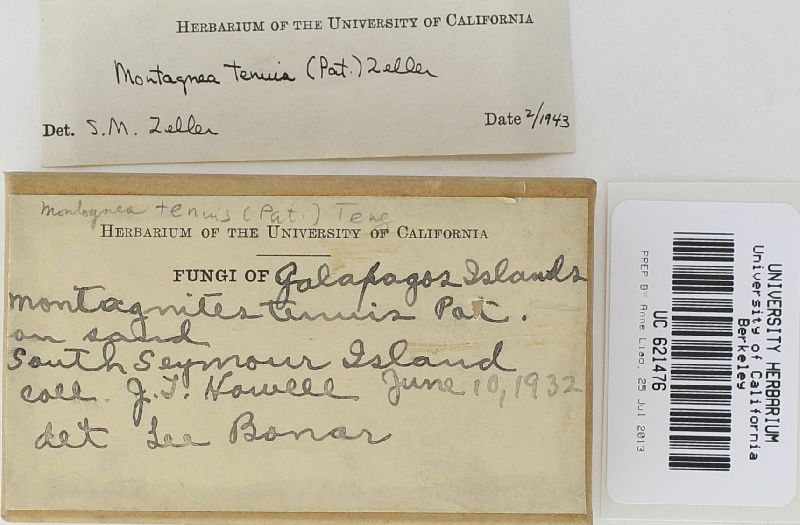 HERBARIUM OF THE UNIVERSITY OF CALIFORNIA
Montagnea tenuis (Pat.) Zeller
Det. S.M. Zeller Date 2/1943
Montagnea tenuis (Pat.) Teng
HERBARIUM OF THE UNIVERSITY OF CALIFORNIA
FUNGI OF Galapagos Islands
Montagnites tenuis Pat.
on sand
South Seymour Island
coll. J.T. Howell June 10, 1932
det Lee Bonar
UNIVERSITY HERBARIUM
University of California
Berkeley
UC 621476
PREP BY Anne Liao, 25 Jul 2013